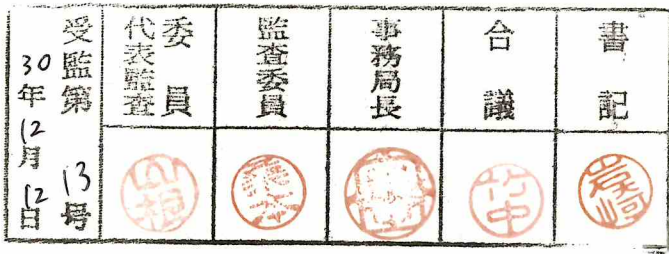 受監第13号
30年12月12日
代表監査委員
監査委員
事務局長
合議
書記
竹中
岩崎